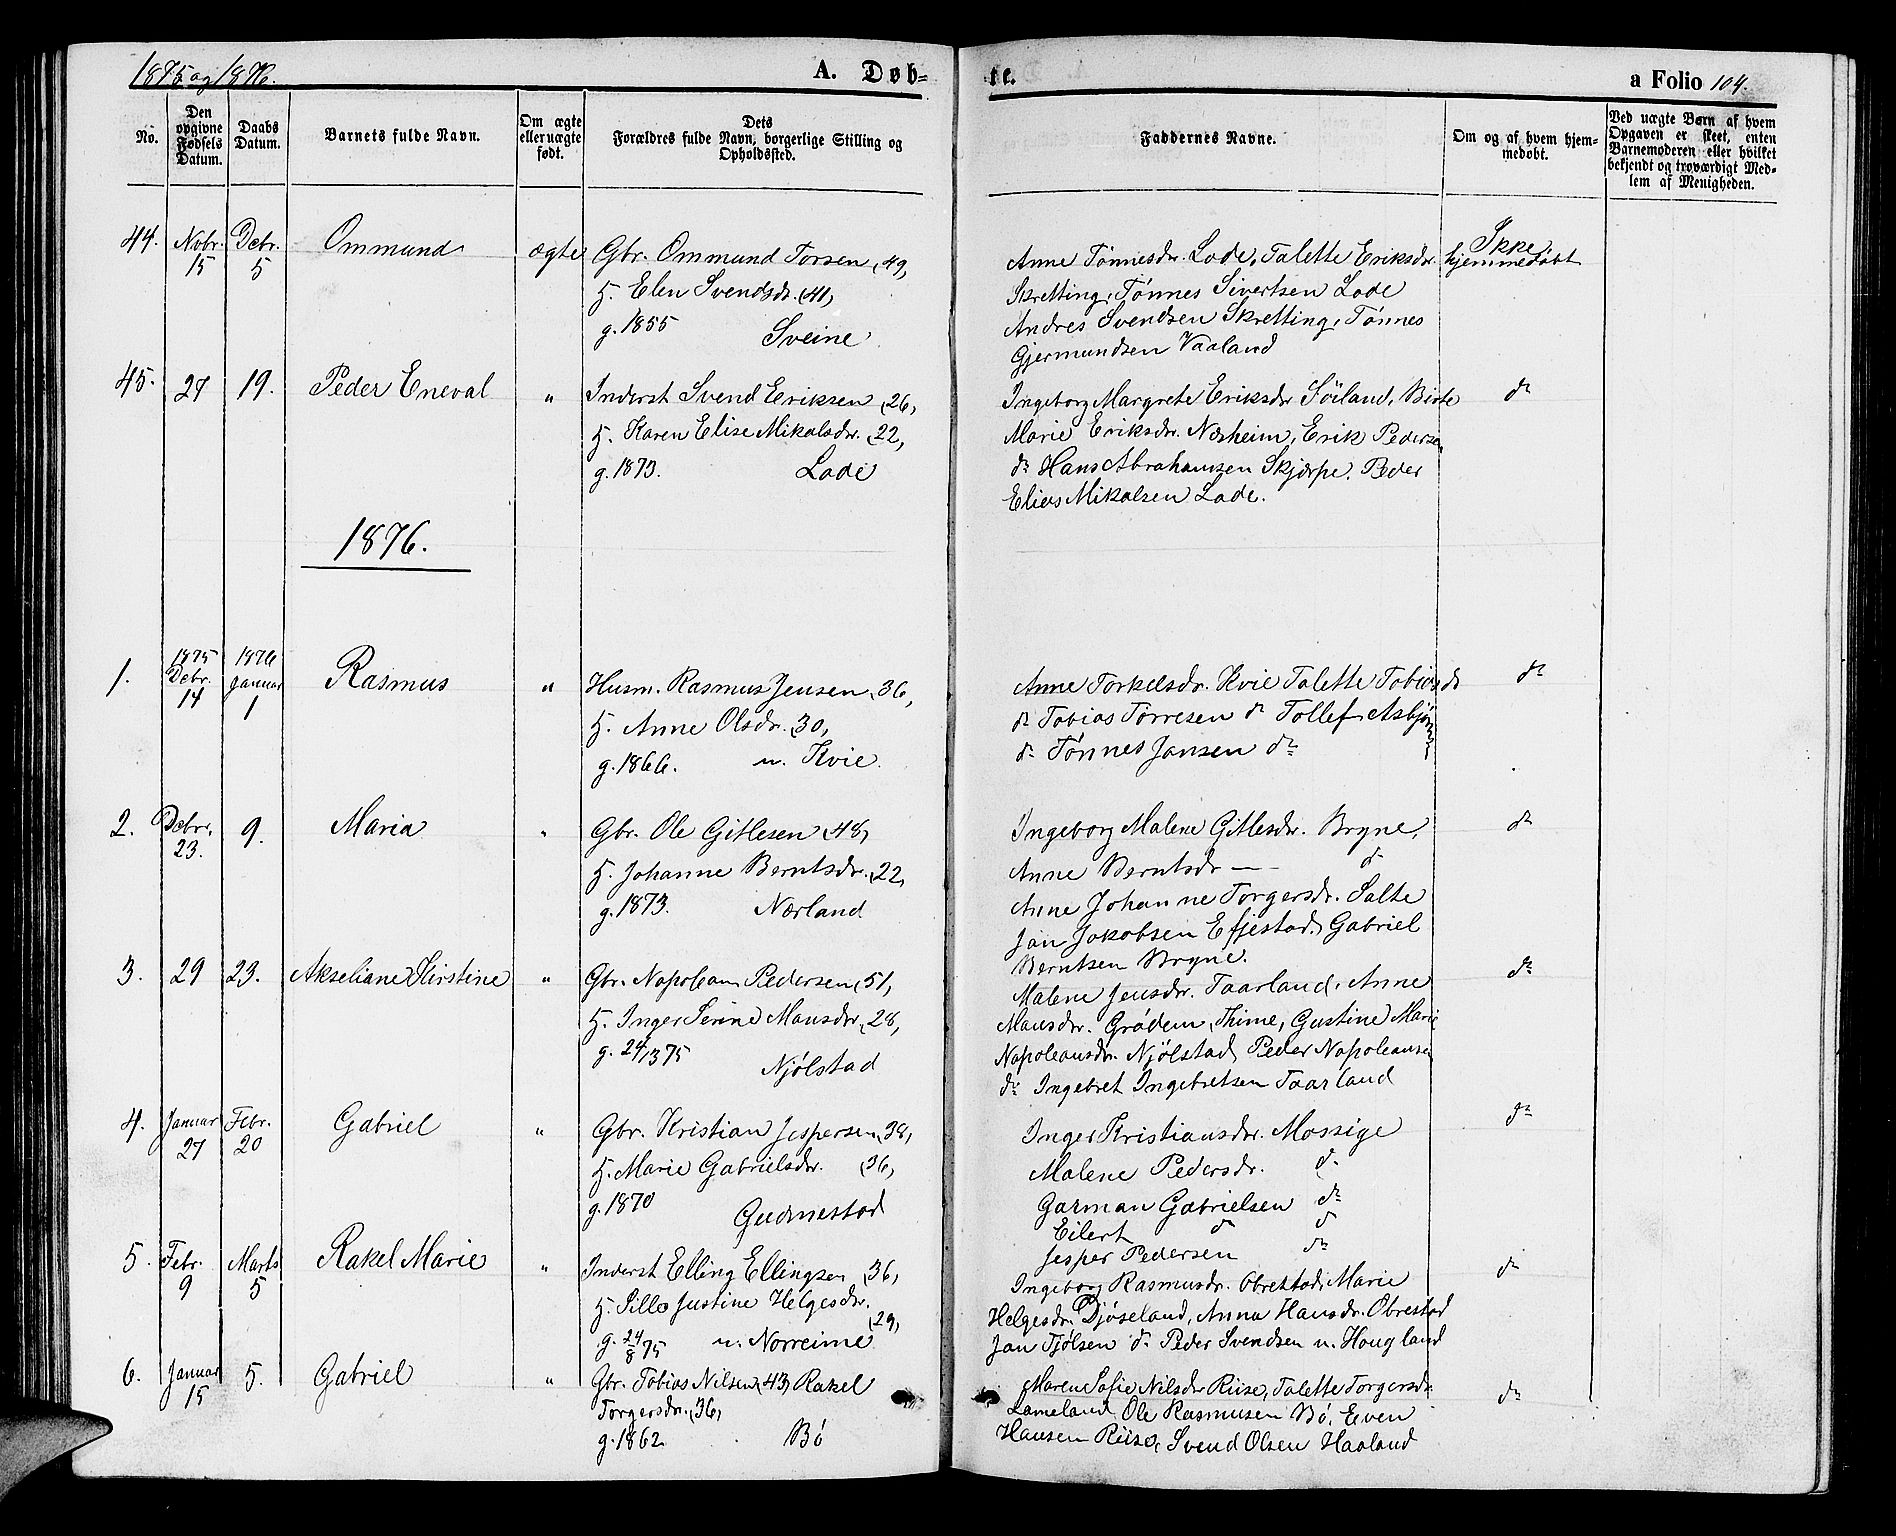 1875 og 1876.
A. Døb-
te.
a Folio 104.
No.
Den opgivne Fødsels Datum.
Daabs Datum.
Barnets fulde Navn.
Om ægte eller uægte født.
Dets Forældres fulde Navn, borgerlige Stilling og Opholdssted.
Faddernes Navne.
Om og af hvem hjemmedøbt.
Ved uægte Børn af hvem Opgaven er skeet, enten Barnemoderen eller hvilket bekjendt og troværdigt Medlem af Menigheden.
44. Nvbr. 15 Dcbr. 5 Ommund ægte
Gbr. Ommund Torsen (49,
H. Elen Svendsdr. (41,
g. 1855 Sveine
Anne Tønnesdr. Lode, Talette Eriksdr.
Skretting, Tønnes Sivertsen Lode
Andres Svendsen Skretting, Tønnes
Gjermundsen Vaaland
Ikke
hjemmedøbt
45. 27 19. Peder Eneval "
Inderst Svend Eriksen (26,
H. Karen Elise Mikalsdr. (22,
g. 1873. Lode
Ingeborg Margrete Eriksdr Söiland, Birte
Marie Eriksdr. Næsheim, Erik Pedersen
do Hans Abrahamsen Skjærpe, Peder
Elias Mikalsen Lode.
do
1876.
1. 1875 Dcbr. 14 1876 Januar 1 Rasmus "
Husm. Rasmus Jensen (36,
H. Anne Olsdr. (30,
g. 1866. u. Kvie.
Anne Torkelsdr. Kvie Talette Tobiasdr
do Tobias Torresen do Tollef Asbjørnsen
do Tønnes Jansen do
do
2. Dcbr. 23. 9. Maria "
Gbr. Ole Gitlesen (48,
H. Johanne Berntsdr. (22,
g. 1873. Nærland
Ingeborg Malene Gitlesdr. Bryne,
Anne Berntsdr — do
Anne Johanne Torgersdr. Salte
Jan Jakobsen Efjestad, Gabriel
Berntsen Bryne.
do
3. 29 23. Akseliane Kirstine "
Gbr. Napolean Pedersen (51,
H. Inger Serine Mausdr. (28,
g. 24/3 75 Njølstad
Malene Jensdr. Taarland, Anne
Mausdr. Grødem, Thime, Gustine Marie
Napoleansdr. Njölstad, Peder Napoleansen
do Ingebret Ingebretsen Taarland
do
4. Januar 27 Febr. 20 Gabriel "
Gbr. Kristian Jespersen (38,
H. Marie Gabrielsdr. (36,
g. 1870 Gudmestad
Inger Kristiansdr. Mossige
Malene Pedersdr. do
Garman Gabrielsen do
Eilert do do
Jesper Pedersen do
do
5. Febr. 9 Marts 5 Rakel Marie "
Inderst Elling Ellingsen (36,
H. Sille Justine Helgesdr.
(29,
g. 24/8 75 u. Norreime
Ingeborg Rasmusdr. Obrestad, Marie
Helgesdr. Djøseland, Anna Hansdr. Obrestad
Jan Tjølsen do Peder Svendsen u. Haugland
do
6. Januar 15 5. Gabriel "
Gbr. Tobias Nilsen (43) Rakel
Torgersdr. (36,
g. 1862 Bö
Maren Sofie Nilsdr Riise, Talette Torgersdr.
Lameland, Ole Rasmusen Bö, Even
Hansen Riise, Svend Olsen Haaland
do